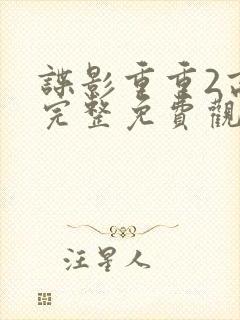 諜影重重2高
完整免費觀
汪星人